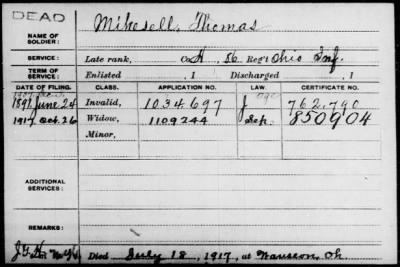 DEAD
NAME OF SOLDIER: Mikesell, Thomas
SERVICE: Late rank, Co. H, 56 Reg't Ohio Inf.
TERM OF SERVICE: Enlisted , 1 Discharged , 1
DATE OF FILING. CLASS. APPLICATION NO. LAW. CERTIFICATE NO.
1891 June 24 Invalid, 1034697 J 762,790
age
1917 Oct. 26 Widow, 1109244 Sep. 850904
Minor,
ADDITIONAL SERVICES:
REMARKS:
Died July 18, 1917, at Wauseon, Oh